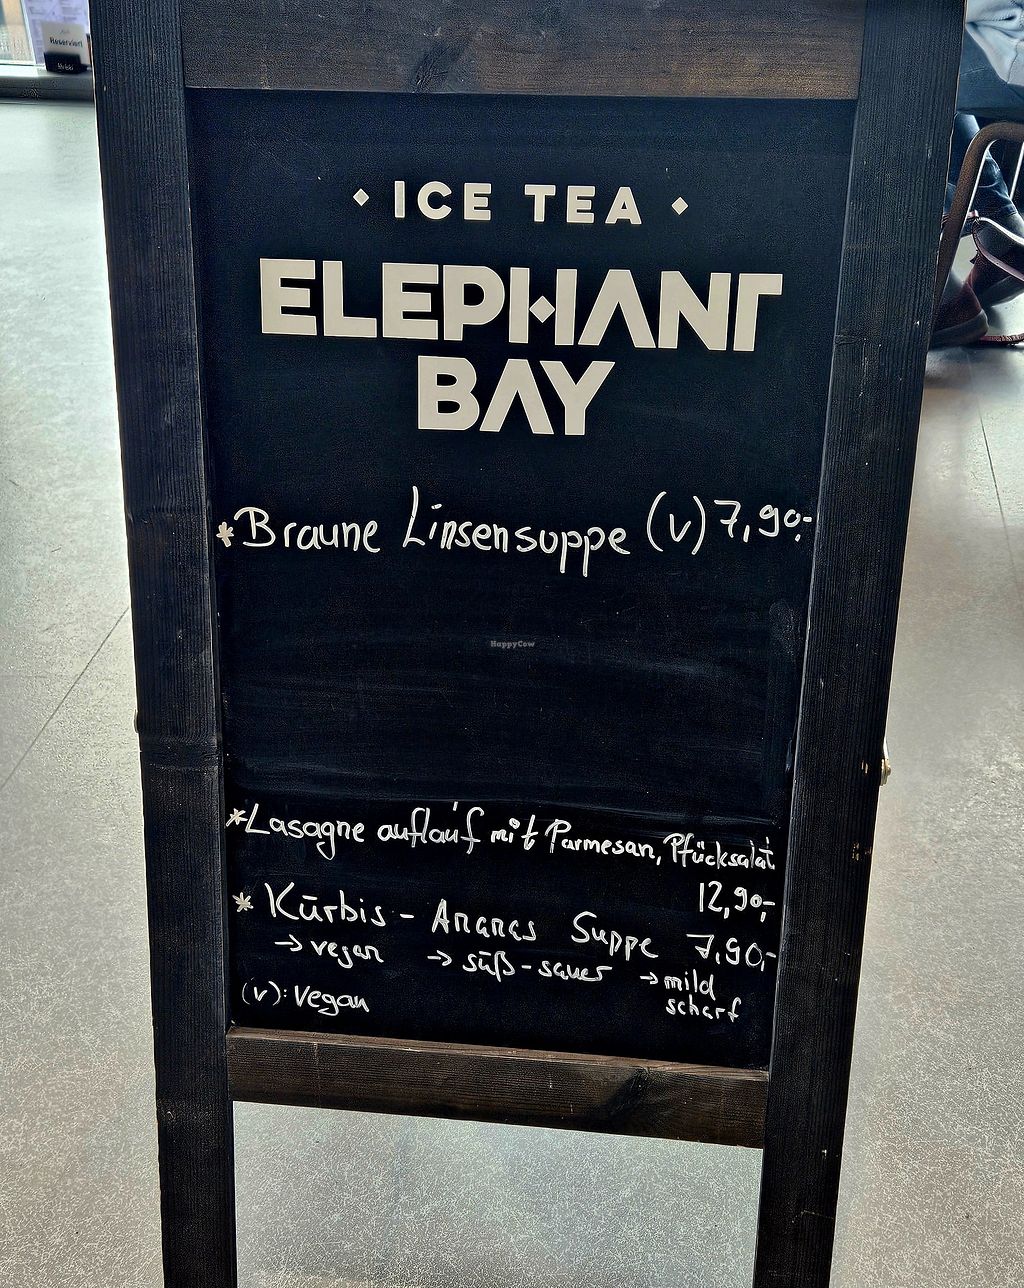 Reserviert
· ICE TEA ·
ELEPHANT
BAY
*Braune Linsensuppe (v) 7,90.-
HappyCow
*Lasagne auflauf mit Parmesan, Pfücksalat
12,90,-
* Kürbis - Ananas Suppe 7,90,-
→ vegan → süß-sauer → mild
scharf
(v): Vegan